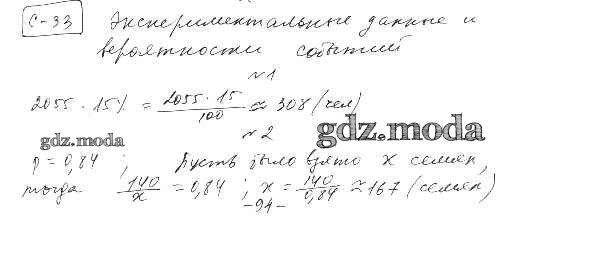 С-33 Экспериментальные данные и
вероятности событий
№1
2055 · 15% = 2055 · 15 / 100 ≈ 308 (чел)
№2
gdz.moda
gdz.moda
p = 0,84 ; Пусть было взято x семян,
тогда 140/x = 0,84 ; x = 140/0,84 ≈ 167 (семян)
-94-